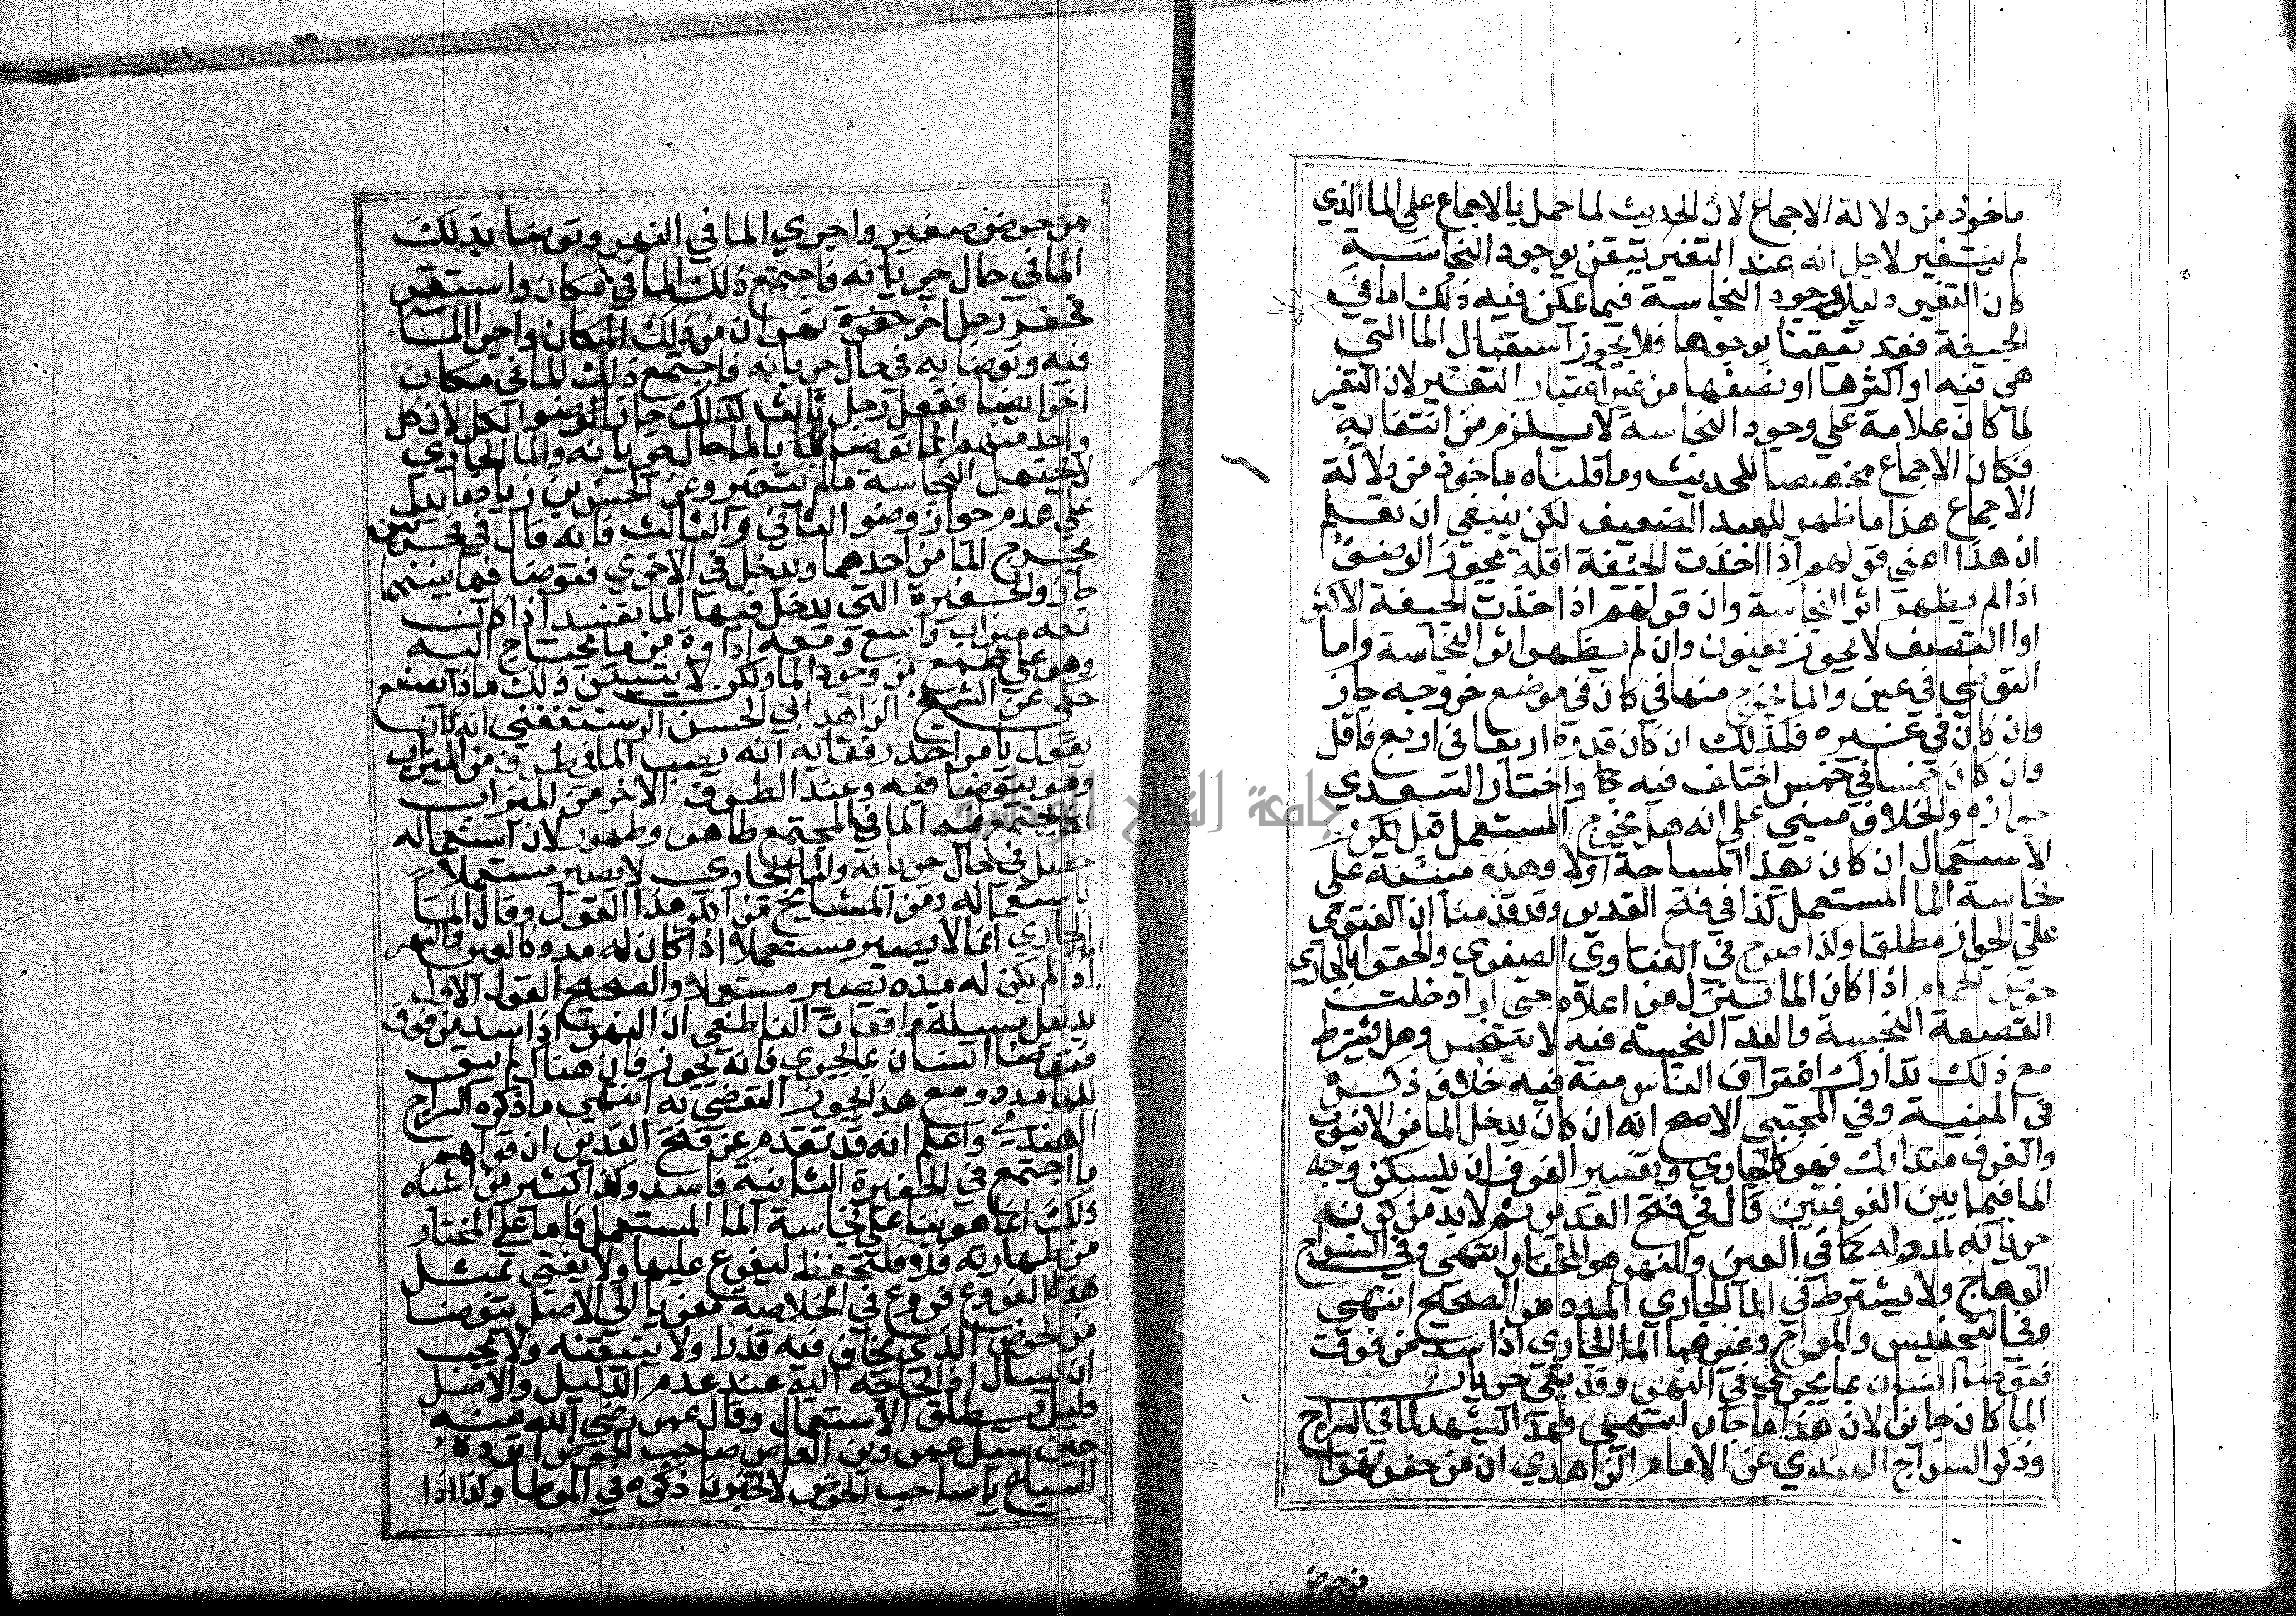 ماخوذ من دلالة الاجماع لان الحديث لما حمل بالاجماع على الما الذي
لم يتغير لاجل انه عند التغير يتقن بوجود النجاسة
كان التغير دليلا لوجود النجاسة فيما عكن فيه ذلك اما في
الجيفة فقد تيقنا بوجودها فلا يجوز استعمال الما التي
هي فيه او اكثرها او نصفها من غير اعتبار التغير لان التغير
لما كان علامة علي وجود النجاسة لا يلزم من انتفايه
فكان الاجماع مخصصا للحديث وما قلناه ماخوذ من دلالة
الاجماع هذا ما ظهر للعبد الضعيف لكن ينبغي ان يعلم
ان هذا اعني قولهم اذا اخذت الجيفة اقله يجوز الوضو
اذا لم يظهر اثر النجاسة وان قولهم اذا اخذت الجيفة الاكثر
او النصف لا يجوز يعنون وان لم يظهر اثر النجاسة واما
التوضي في عين والما يخرج منها في كان في موضع خروجه جاز
وان كان في غيره فكذلك ان كان قدره اربعا في اربع فاقل
وان كان خمسا في خمس اختلف فيه واختار السعدي
جوازه والخلاف مبني علي انه هل يخرج المستعمل قبل تكرر
الاستعمال ان كان بهذا المساحة اولا وهذه مبنية علي
نجاسة الما المستعمل كذا في فتح القدير وقد قدمنا ان الفتوي
علي الجواز مطلقا وكذا صرح في الفتاوي الصغري والحقوا بالجاري
حوض الحمام اذا كان الما ينزل من اعلاه حتي لو ادخلت
القصعة النجسة واليد النجسه فيه لا يتنجس وهل يشترط
مع ذلك تدارك اغتراف الناس منه فيه خلاف ذكره
في المنية وفي المجتبي الاصح انه ان كان يدخل الما من الانبوب
والغرف متدارك فهو كالجاري وتفسير الغرف ان لا يسكن وجه
الما فيما بين الغرفتين قال في فتح القدير ثم لا بد من كون
جريانه لمدد له كما في العين والنهر هو المختار انتهي وفي السراج
الوهاج ولا يشترط في الما الجاري المدد هو الصحيح انتهي
وفي التجنيس والمعراج وغيرهما الما الجاري اذا سد من فوق
فتوضا انسان بما يجري في النهر وقد بقي جريان
الما كان جايزا لان هذا ما جار انتهي فهذا يشهد لما في السراج
وذكر السراج الهندي عن الامام الزاهدي ان من حفر نهرا
من حوض
من حوض صغير واجري الما في النهر وتوضا بذلك
الما في حال جريانه فاجتمع ذلك الما في مكان واستقر
فحفر رجل اخر حفرة نهرا من ذلك المكان واجرا الما
فيه وتوضا به في حال جريانه فاجتمع ذلك الما في مكان
اخر ايضا ففعل رجل ثالث كذلك جاز الوضو الكل لان كل
واحد منهم انما توضا بالما حال جريانه والما الجاري
لا يحتمل النجاسة ما لم يتغير وعن الحسن بن زياد ما يدل
علي عدم جواز وضو الثاني والثالث فانه قال في حفرتين
يخرج الما من احدهما ويدخل في الاخري فتوضا فيما بينهما
جاز والحفيرة التي يدخل فيها الما تفسد اذا كان
معه ميزاب واسع ومعه اداوة من ما يحتاج اليه
وهو علي طمع من وجود الما ولكن لا يتيقن ذلك ماذا يصنع
حكي عن الشيخ الزاهد ابي الحسن الرستغفني انه كان
يقول يامر احد رفقايه انه يصب الما في طرف من الميزاب
وهو يتوضا فيه وعند الطرف الاخر من الميزاب
يجتمع فيه الما في المجتمع طاهر وطهور لان استعماله
حصل في حال جريانه والما الجاري لا يصير مستعملا
باستعماله ومن المشايخ من انكر هذا القول وقال الما
الجاري انما لا يصير مستعملا اذا كان له مدد كالعين والنهر
اذا لم يكن له مدد يصير مستعملا والصحيح القول الاول
بدليل مسيلة واقعات الناطفي ان النهر اذا سد من فوق
فتوضا انسان بما يجري فانه يجوز فان هنا لم يبق
للما مدد ومع هذا يجوز التوضي به انتهي ما ذكره السراج
الهندي واعلم انه قد تقدم عن فتح القدير ان قولهم
ما اجتمع في الحفيرة الثانية فاسد وكذا كثير من اشباه
ذلك انما هو بنا علي نجاسة الما المستعمل فاما علي المختار
من طهارته فلا فلتحفظ ليفرع عليها ولا يفتي بمثل
هذه الفروع فروع في الخلاصة معزيا الي الاصل يتوضا
من الحوض الذي يخاف فيه قذرا ولا يتيقنه ولا يجب
ان يسال اذ الحاجة اليه عند عدم الدليل والاصل
دليل يطلق الاستعمال وقال عمر رضي الله عنه
حين سيل عمرو بن العاص صاحب الحوض ايرده
السباع يا صاحب الحوض لا تخبرنا ذكره في الموطا وكذا اذا